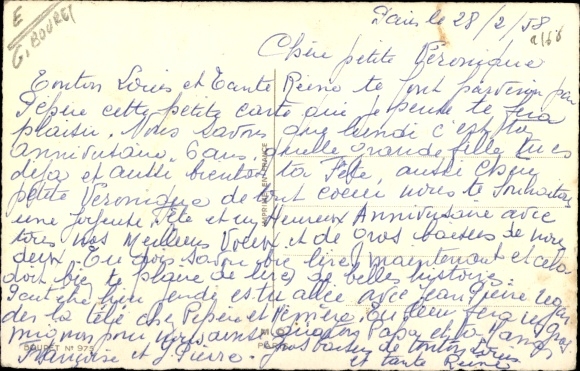 E
G. BOURET
Paris le 28/2/58
Chère petite Véronique
Tonton Louis et Tante Reine te font parvenir par
Pépère cette petite carte que je pense te fera
plaisir. Nous savons que lundi c'est ton
anniversaire, 6 ans, quelle grande fille tu es
déjà et aussi bientôt ta Fête, aussi chère
petite Véronique de tout coeur nous te souhaitons
une joyeuse Fête et un Heureux Anniversaire avec
tous nos Meilleurs Voeux et de gros baisers de nous
deux. Tu dois savoir bien lire maintenant et cela
doit bien te plaire de lire de belles histoires.
Peut être hier jeudi es tu allée avec Jean Pierre
la télé chez Pépère et Mémère.
mignon pour vous ainsi que ton Papa et ta Maman
Françoise et J. Pierre. Gros baisers de tonton Louis
et tante Reine
IMPRIMÉ EN FRANCE
BOURET N° 975